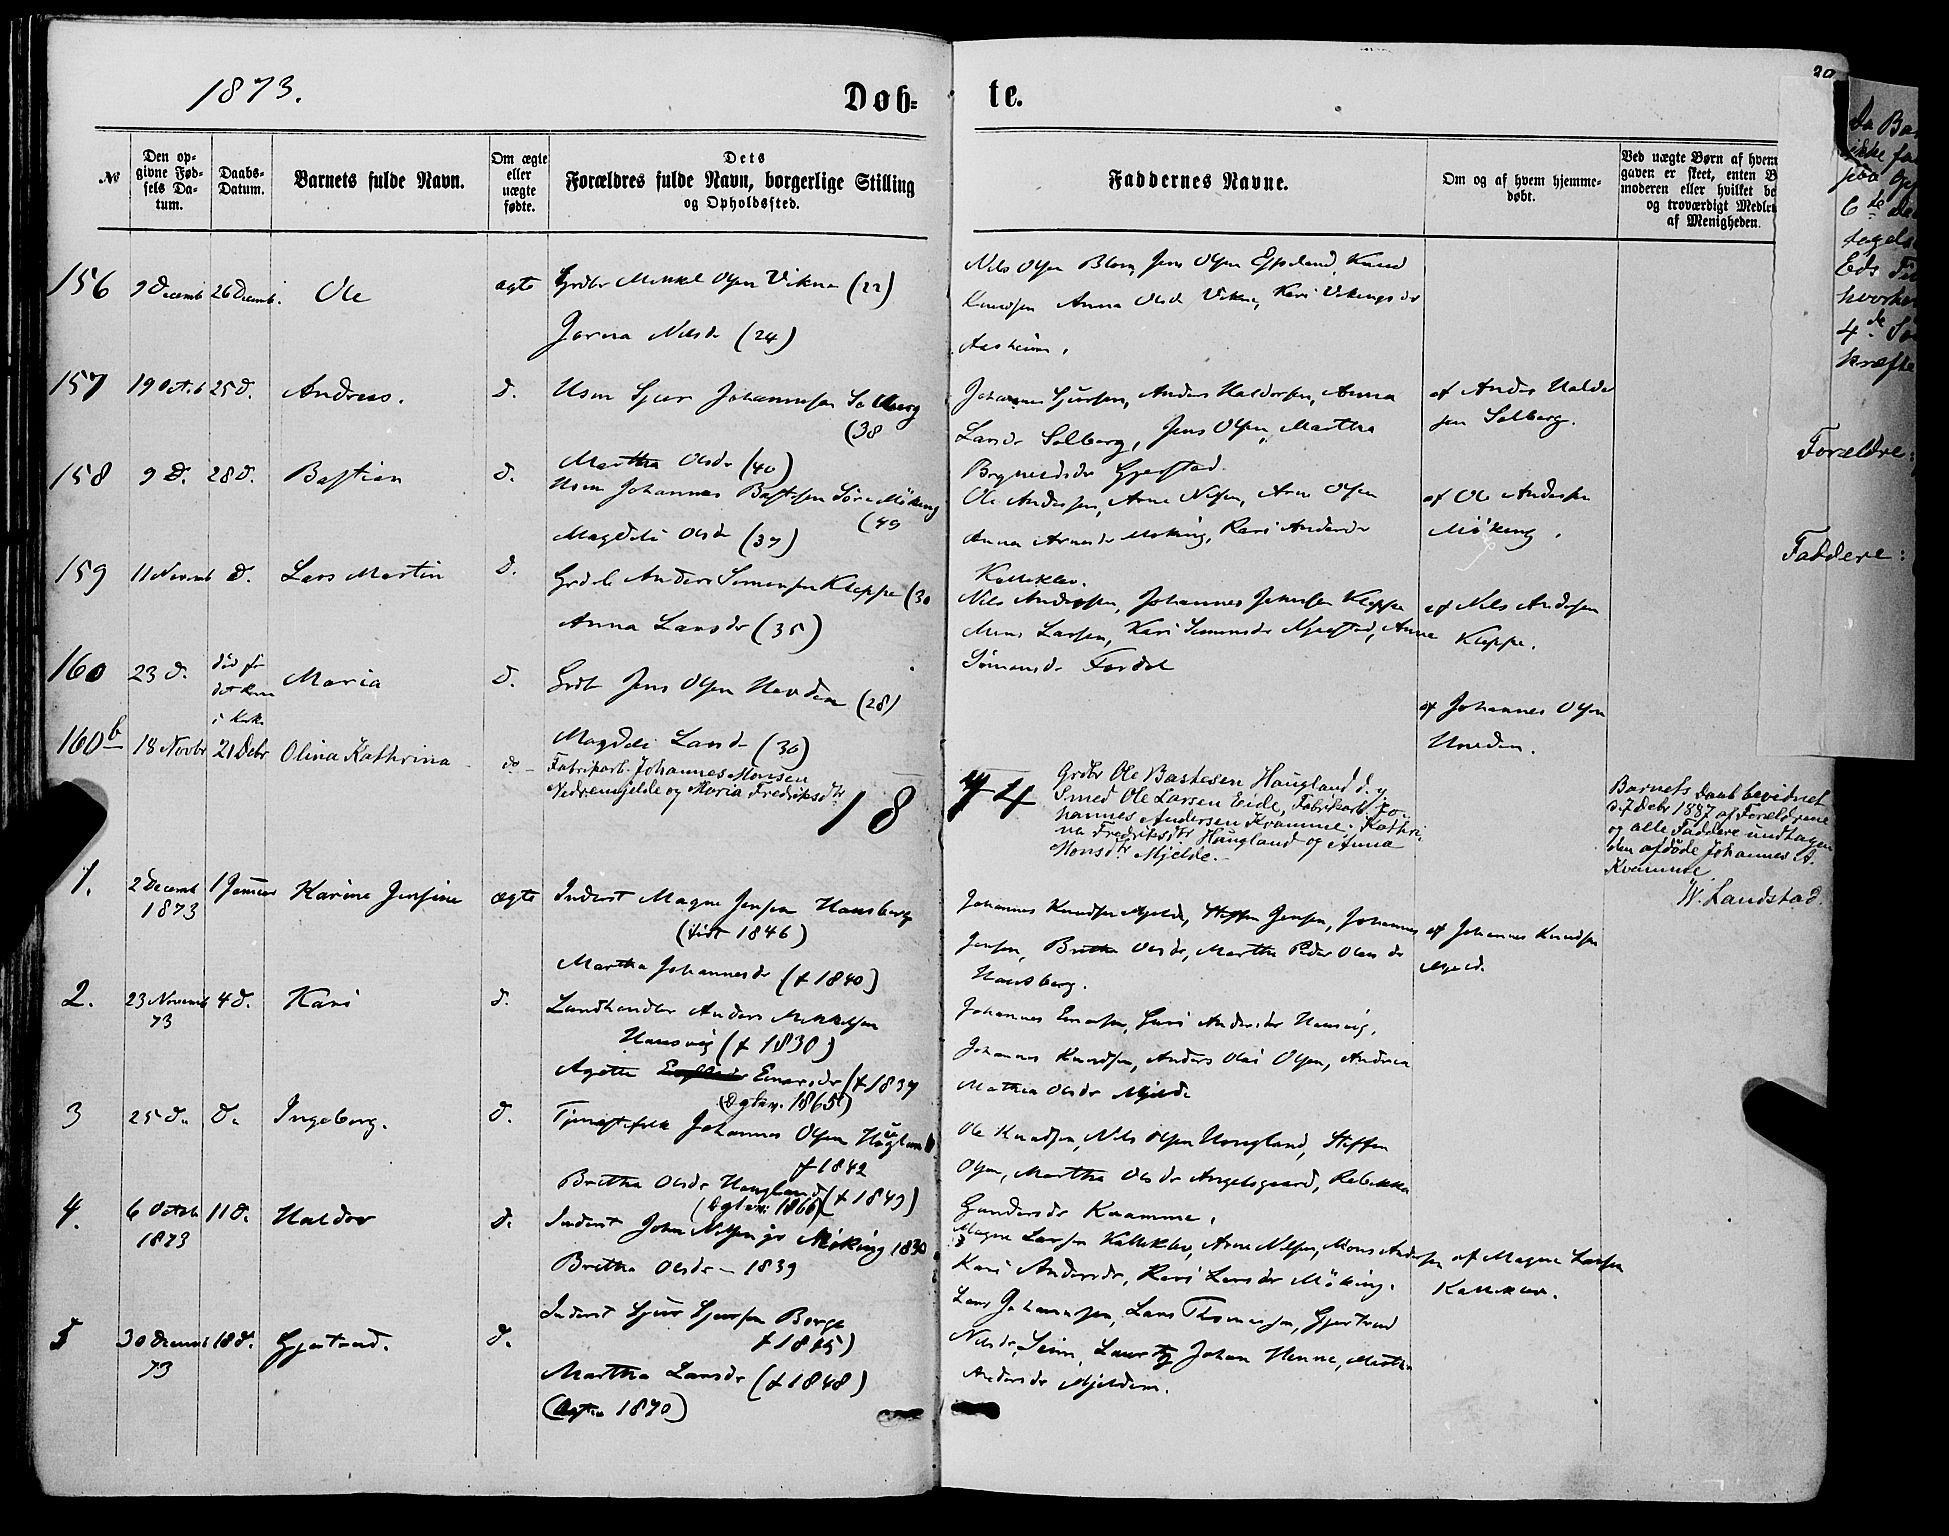 1873.
Døb-
te.
20
№
Den op-
givne Fød-
sels Da-
tum.
Daabs-
Datum.
Barnets fulde Navn.
Om ægte
eller
uægte
fødte.
Dets
Forældres fulde Navn, borgerlige Stilling
og Opholdssted.
Faddernes Navne.
Om og af hvem hjemme-
døbt.
Ved uægte Børn af hvem
gaven er skeet, enten B
moderen eller hvilket be
og troværdigt Medlem
af Menigheden.
156 9 Decemb 26 Decemb. Ole ægte Grdbr Mikkel Olsen Vikne (22)
Nilsd (24)
Nils Olsen Blom, Jens Olsen Espeland, Knud
Knudsen Anna Olsd Vikne, Kari Vikingsdr
Aasheim.
157 19 Octb 25 d. Andreas. d. Husm Sjur Johannessen Solberg
(38
Martha Olsdr (40)
Johannes Sjursen, Anders Haldorsen, Anna
Larsdr Solberg, Jens Olsen, Martha
Brynildsdr Gjerstad.
af Anders Haldor
sen Solberg.
158 9 d. 28 d. Bastian d. Husm Johannes Bastesen Søre Møking
(49
Magdeli Olsdr (37)
Ole Andersen, Arne Nilsen, Arne Olsen
Anna Arnesdr Moking, Kari Andersdr
Kalleklev.
af Ole Andersen
Møking.
159 11 Novemb d. Lars Martin d. Grdbr Anders Simonsen Kleppe (30
Anna Larsdr (35)
Nils Andersen, Johannes Jensen Kleppe
Mons Larsen, Kari Simonsdr Njøstad, Anna
Simonsdr Fordal
af Nils Andersen
Kleppe.
160 23 d. død før
det kom
i Kirke
Maria d. Grdbr Jens Olsen Unedom (28)
Magdeli Larsdr (30)
af Johannes Olsen
Uneden.
160b 18 Novbr 21 Debr Olina Kathrina d. Fabrikarb. Johannes Monsen
Nedremjelde og Maria Fredriksdtr.
Grdbr Ole Bastesen Haugland d.y
Smed Ole Larsen Eide, Fabrikarb. Jo-
hannes Andersen Kvamme. Kathri-
na Fredriksdtr. Haugland og Anna
Monsdtr Mjelde.
Barnets Daab bevidnet
d. 7 Debr 1887 af Forældrene
og alle Faddere undtagen
den afdøde Johannes A.
Kvamme
W. Landstad.
18
74
1. 2 Decemb
1873
1 Januar Karine Jensine ægte Inderst Magne Jensen Hausberg
(født 1846)
Martha Johannesdr (f 1840)
Johannes Knudsen Mjelde, Steffen Jensen, Johannes
Jensen, Britha Olsdr, Martha Peder Olsdr
Hausberg.
af Johannes Knudsen
Mjelde.
2. 23 Novemb
73
4 d. Kari d. Landhandler Anders Mikkelsen
Hausvig (f 1830)
Agatha Einarsdr (f 1837
(Egtev. 1865)
Johannes Einarsen, Guri Andersdr Hausvig,
Johannes Knudsen, Anders Olai Olsen, Andrea
Mathea Olsdr Mjelde
3 25 d. d. Ingeborg. d. Tjenestefolk Johannes Olsen Haugland
f 1842
Britha Olsdr Haugland (f 1849)
(Egtev. 1866)
Ole Knudsen, Nils Olsen Haugland, Steffen
Olsen, Martha Olsdr Angelsgaard, Rebekka
Gundersdr Kvamme.
4. 6 Octob
1873
11 d. Haldor d. Inderst John Nilsen Møking 1830
Britha Olsdr – 1839
Magne Larsen Kalleklev, Arne Nilsen, Mons Andersen
Kari Andersdr, Kari Larsdr Møking.
af Magne Larsen
Kalleklev.
5 30 Decemb
73
18 d. Gjertrud. d. Inderst Sjur Sjursen Borge
f 1845)
Martha Larsdr (f 1848)
(Egtev 1870)
Lars Johannessen, Lars Thomassen, Gjertrud
Nilsdr Seim, Lauritz Johan Henne, Martha
Andersdr Mjeldem.
da Bar
ikke fa
6te De
Eds F
4de Sø
kræfte
Forældre:
Faddere: